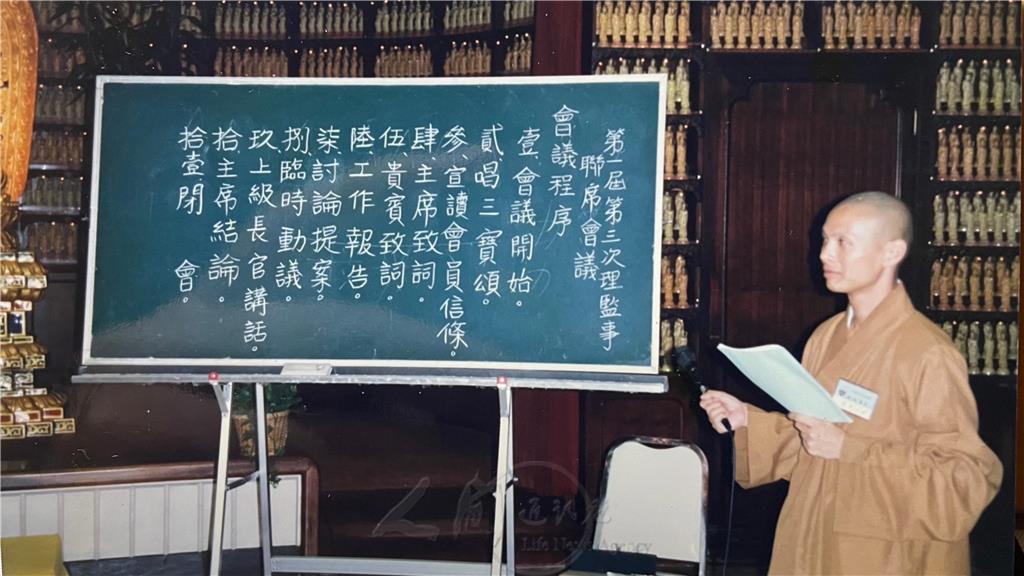 第一屆第三次理監事
聯席會議
會議程序
壹、會議開始。
貳、唱三寶頌。
參、宣讀會員信條。
肆主席致詞。
伍貴賓致詞。
陸工作報告。
柒討論提案。
捌臨時動議。
玖上級長官講話。
拾主席結論。
拾壹閉會。
人間通訊社
Life News Agency